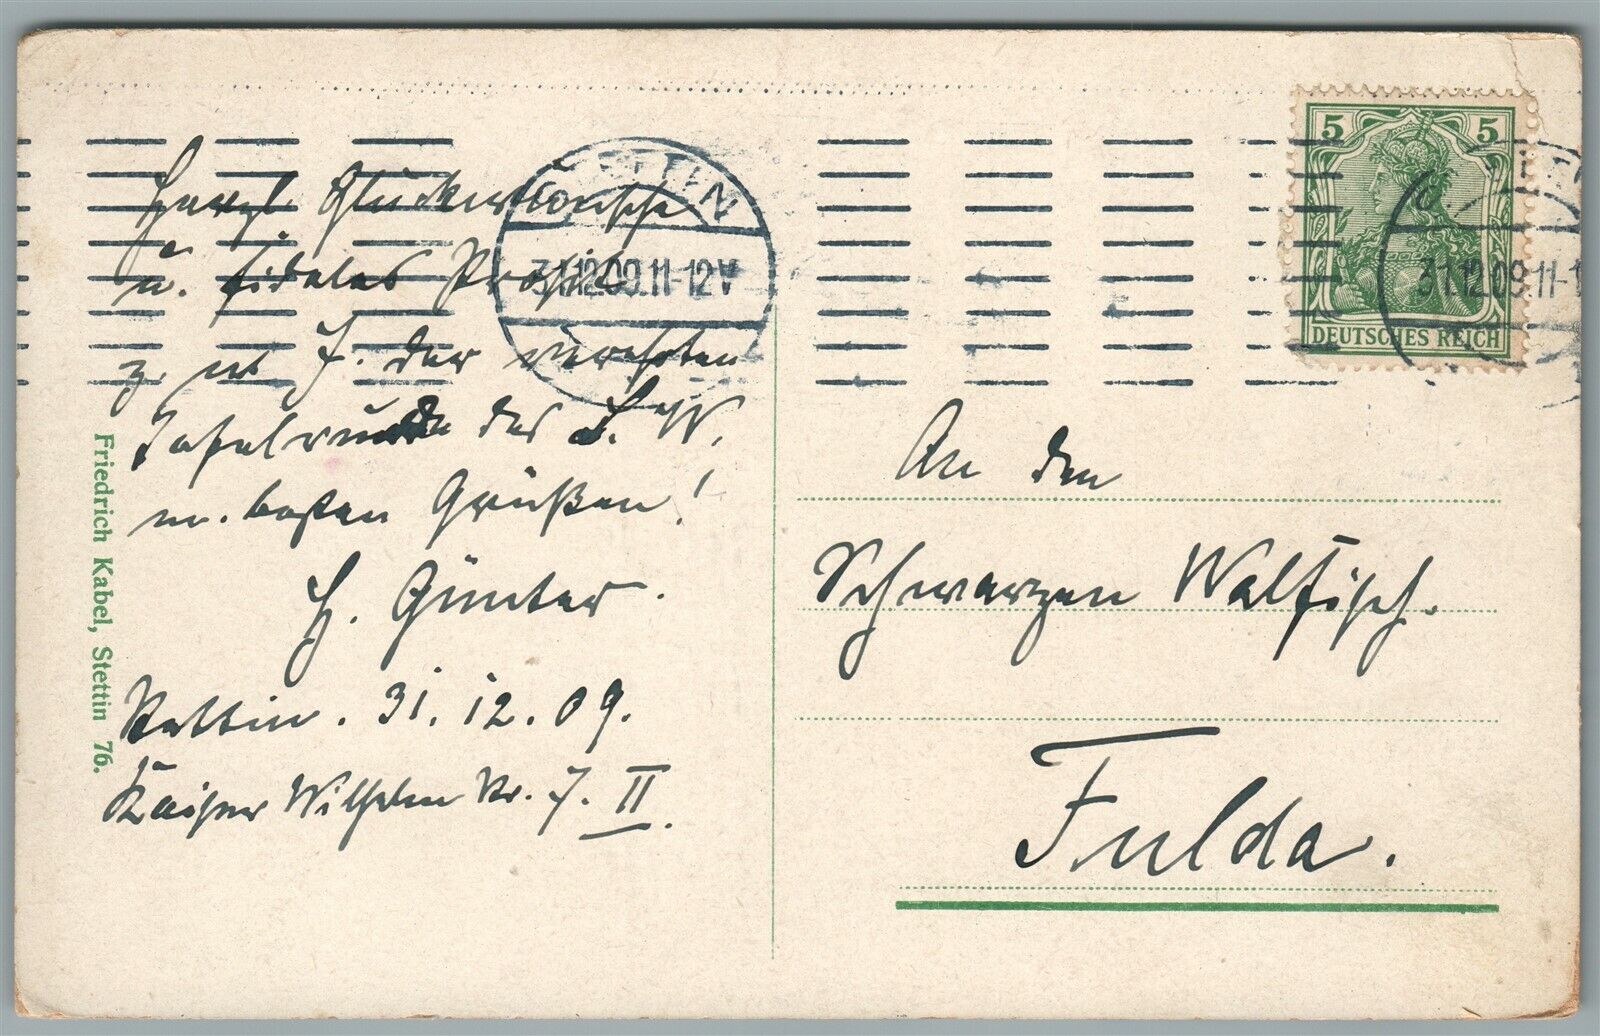 Herzl. Glückwünsche
u. fideles Prosit
z. n. J. der verehrten
Tafelrunde des S. W.
m. besten Grüßen!
H. Günter.
Stettin. 31. 12. 09.
Kaiser Wilhelm Str. 7. II.
Friedrich Kabel, Stettin 76.
STETTIN
31.12.09.11-12V
5 5
DEUTSCHES REICH
31.12.09.11-1
An den
Schwarzen Walfisch.
Fulda.